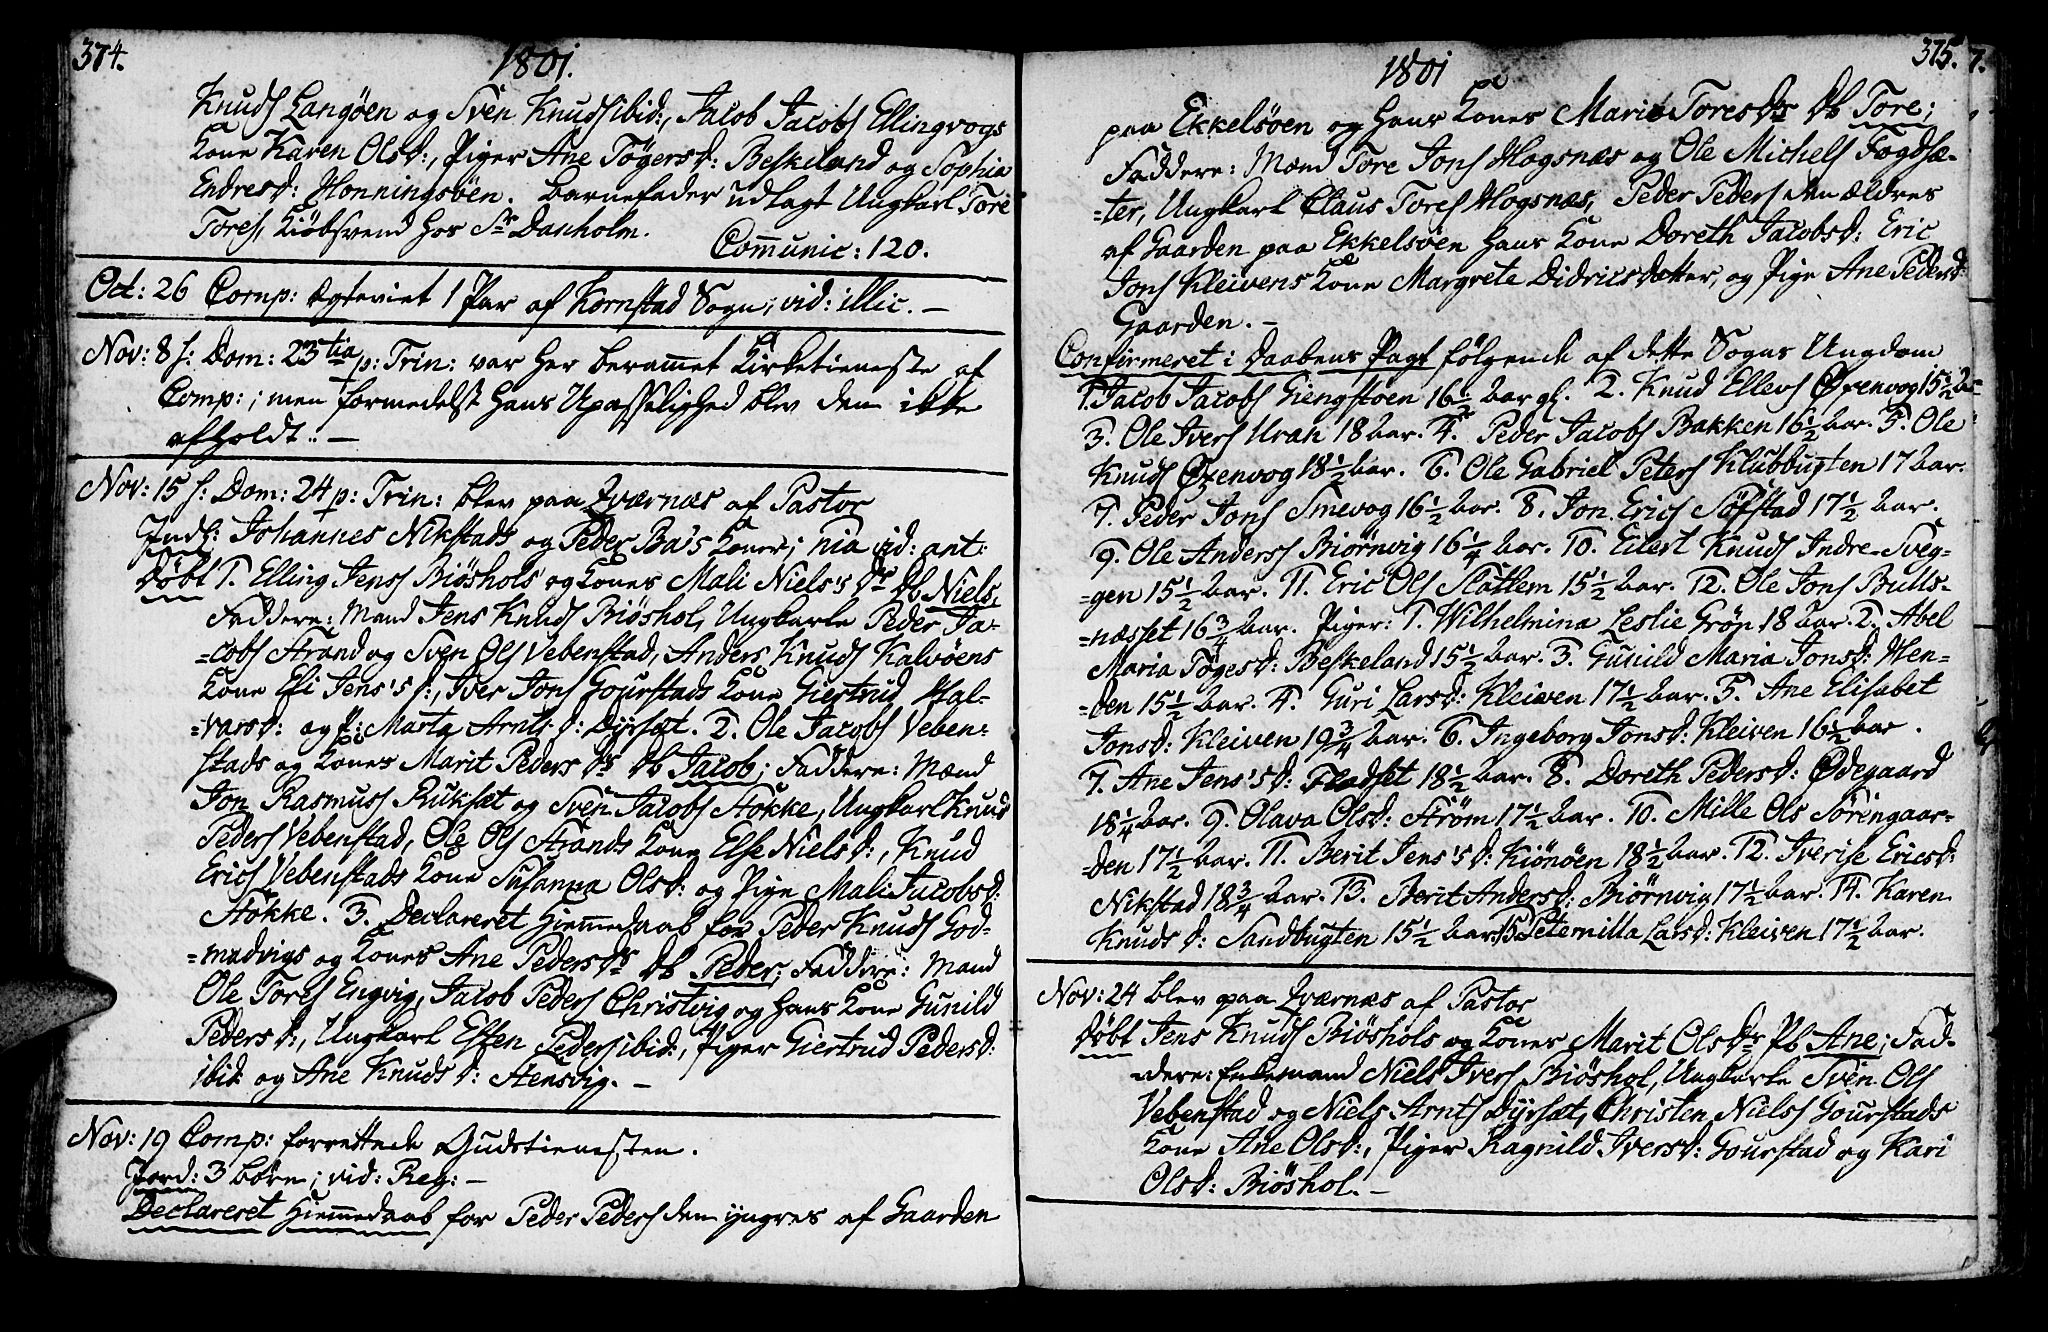 374.
1801.
Knuds Langöen og Sven Knuds ibid:, Jacob Jacobs Ellingvogs
Kone Karen Olsd:, Piger Ane Tögersd: Beskeland og Sophia
Endresd: Honningsöen. Barnefader udlagt Ungkarl Tore
Tores, Kiöbsvend hos Sr Danholm.
Com̄unic: 120.
Oct: 26 Comp: Ægteviet 1 Par af Kornstad Sogn; vid: illic. —
Nov: 8 s: Dom: 23tia p: Trin: var her beram̄et Kirketieneste af
Comp:; men formedelst hans Upasselighed blev den ikke
afholdt. —
Nov: 15 s: Dom: 24 p: Trin: blev paa Qværnæs af Pastor
Indl: Johannes Nikstads og Peder Ba's Koner; nia vid: ant:
Döbt 1. Elling Jens Biöshols og Kones Mali Niels's Dr Db Niels,
Faddere: Mand Jens Knuds Biöshol, Ungkarle Peder Ja-
=cobs Strand og Sven Ols Vebenstad, Anders Knuds Kalvöens
Kone Efi Jens's d:, Iver Jons Gourstads Kone Giertrud Hal-
=varsd: og P: Marta Arnts d: Dyrsæt. 2. Ole Jacobs Veben-
stads og Kones Marit Peders Ds Db Jacob; Faddere: Mænd
Jon Rasmuss Ruksæt og Sven Jacobs Stokke, Ungkarl Knud
Peders Vebenstad, Ole Ols Strands Kone Else Nielsd:, Knud
Erics Vebenstads Kone Susanna Olsd: og Pige Mali Jacobsd:
Stokke. 3. Declareret Hiem̄edaab for Peder Knuds God-
=madvigs og Kones Ane Peders Ds Db Peder; Faddere: Mand
Ole Tores Engvig, Jacob Peders Christvig og hans Kone Gunild
Peders d:, Ungkarl Esten Peders ibid:, Piger Giertrud Pedersd:
ibid: og Ane Knuds d: Stensvig. —
Nov: 19 Comp: forrettede Gudstienesten.
Jord: 3 börn; vid: Reg: —
Declareret Hiem̄edaab for Peder Peders den yngres af Gaarden
375.
1801
paa Ekkelsöen og hans Kones Mari Tores Ds Db Tore;
Faddere: Mænd Tore Jons Hogsnæs og Ole Michels Fogdsæ-
=ter, Ungkarl Claus Tores Hogsnæs, Peder Peders den ældres
af Gaarden paa Ekkelsöen hans Kone Doreth Jacobsd: Eric
Jons Kleivens Kone Margrete Didricsdatter, og Pige Ane Pedersd:
Gaarden. —
Confirmeret i Daabens Pagt fölgende af dette Sogns Ungdom
1. Jacob Jacobs Giengstöen 16 1/2 Aar gl. 2. Knud Ellevs Øxenvog 15 1/2 Aar
3. Ole Ivers Urah 18 Aar. 4. Peder Jacobs Bakken 16 1/2 Aar. 5. Ole
Knuds Øxenvog 18 1/2 Aar. 6. Ole Gabriel Peters Klubbugten 17 Aar.
7. Peder Jons Smevog 16 1/2 Aar. 8. Jon Erics Söfstad 17 1/2 Aar.
9. Ole Anders Biörnvig 16 1/4 Aar. 10. Eilert Knuds Indre-Sveg=
=gen 15 1/2 Aar. 11. Eric Ols Slatlem 15 1/2 Aar. 12. Ole Jons Bulls-
=næsset 16 3/4 Aar. Piger: 1. Wilhelmina Leslie Grön 18 Aar. 2. Abel
Maria Tögesd: Beskeland 15 1/2 Aar. 3. Gunild Maria Jonsd: Hen=
=den 15 1/2 Aar. 4. Guri Larsd: Kleiven 17 1/2 Aar. 5. Ane Elisabet
Jonsd: Kleiven 19 3/4 Aar. 6. Ingeborg Jonsd: Kleiven 16 1/2 Aar.
7. Ane Jens's d: Fladset 18 1/2 Aar. 8. Doreth Pedersd: Ødegaard
18 1/4 Aar. 9. Olava Olsd: Ström 17 1/2 Aar. 10. Mille Ols Sörengaar=
=den 17 1/2 Aar. 11. Berit Jens's d: Kiönöen 18 1/2 Aar. 12. Iverise Ericsd:
Nikstad 18 3/4 Aar. 13. Berit Anders d: Biörnvig 17 1/2 Aar. 14. Karen
Knuds d: Sandbugten 15 1/2 Aar. 15. Peternilla Larsd: Kleiven 17 1/2 Aar.
Nov: 24 blev paa Qværnæs af Pastor
Döbt Jens Knuds Biöshols og Kones Marit Ols Dr Pb Ane; Fad-
dere: Enkemand Niels Ivers Biöshol, Ungkarle Sven Ols
Vebenstad og Niels Arnts Dyrsæt, Christen Niels Gourstads
Kone Ane Olsd:, Piger Ragnild Iversd: Gourstad og Kari
Olsd: Biöshol. —